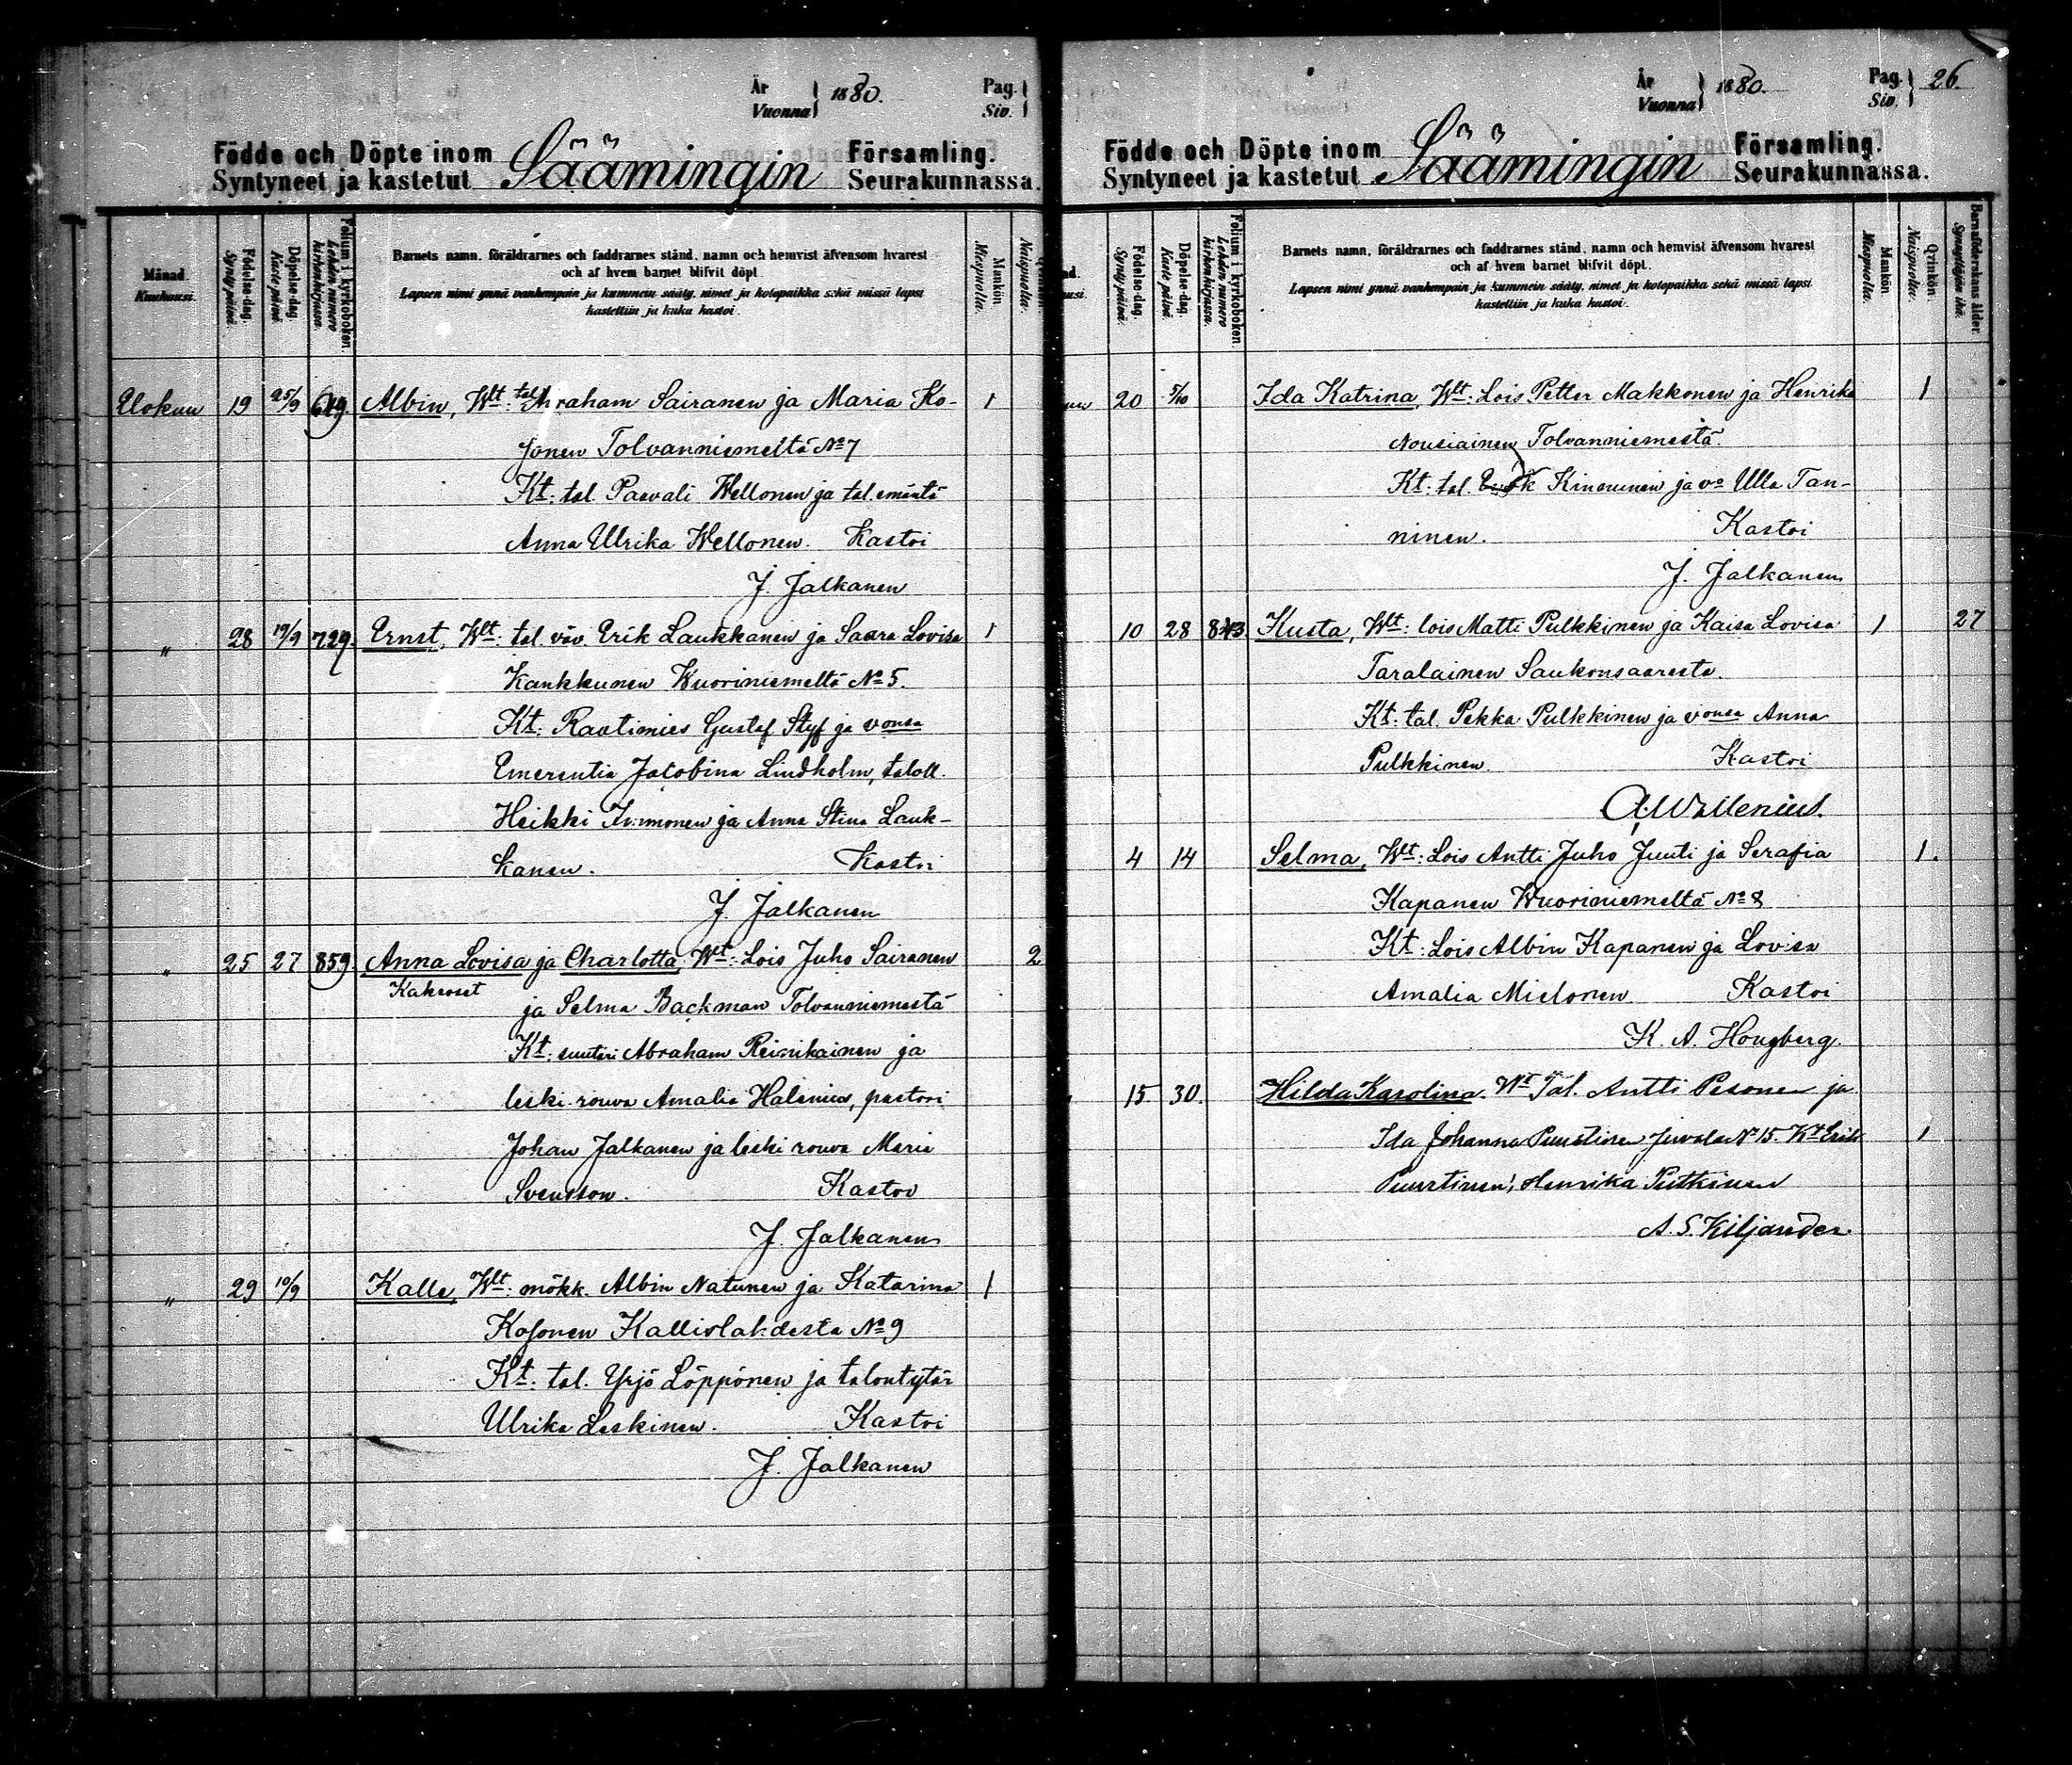 År
Vuonna } 1880.
Pag.
Siv. }
Födde och Döpte inom Säämingin Församling.
Syntyneet ja kastetut Seurakunnassa.
Månad. Kuukausi.
Födelse-dag. Synty-päivä.
Döpelse-dag. Kaste-päivä.
Folium i kyrkoboken. Lehden numero kirkonkirjassa.
Barnets namn, föräldrarnes och faddrarnes stånd, namn och hemvist äfvensom hvarest
och af hvem barnet blifvit döpt.
Lapsen nimi ynnä vanhempain ja kummein sääty, nimet ja kotopaikka sekä missä lapsi
kastettiin ja kuka kastoi.
Mankön. Miespuolta.
Naispuolta.
Elokuu 19 25/9 619. Albin, Wlt: tal. Abraham Sairanen ja Maria Ko- 1
sonen Tolvanniemeltä No 7
Kt: tal. Paavali Wellonen ja tal. emäntä
Anna Ulrika Wellonen. Kastoi
J. Jalkanen
" 28 19/9 729. Ernst, Wlt: tal. väv. Erik Laukkanen ja Saara Lovisa 1
Kankkunen Wuoriniemeltä No 5.
Kt: Rautimies Gustaf Styf ja vonsa
Emerentia Jacobina Lindholm, taloll.
Heikki Immonen ja Anna Stina Lauk-
kanen. Kastoi
J. Jalkanen
" 25 27 859 Anna Lovisa ja Charlotta, Wlt: Lois Juho Sairanen 2
Kaksoset
ja Selma Backman Tolvanniemestä
Kt: suutari Abraham Reinikainen ja
leski rouva Amalia Halenius, pastori
Johan Jalkanen ja leski rouva Maria
Svensson. Kastoi
J. Jalkanen
" 29 10/9 Kalle, Wlt: mökk. Albin Natunen ja Katarina 1
Kosonen Kalliolahdesta No 9
Kt: tal. Yrjö Löppönen ja talontytär
Ulrika Laskinen. Kastoi
J. Jalkanen
År
Vuonna } 1880.
Pag.
Siv. } 26.
Födde och Döpte inom Säämingin Församling.
Syntyneet ja kastetut Seurakunnassa.
Födelse-dag. Synty-päivä.
Döpelse-dag. Kaste-päivä.
Folium i kyrkoboken. Lehden numero kirkonkirjassa.
Barnets namn, föräldrarnes och faddrarnes stånd, namn och hemvist äfvensom hvarest
och af hvem barnet blifvit döpt.
Lapsen nimi ynnä vanhempain ja kummein sääty, nimet ja kotopaikka sekä missä lapsi
kastettiin ja kuka kastoi.
Mankön. Miespuolta.
Qvinkön. Naispuolta.
Barnaföderskans ålder. Synnyttäjän ikä.
20 5/10 Ida Katrina, Wlt: Lois Petter Makkonen ja Henrika 1
Nousiainen Tolvanniemestä.
Kt: tal. Erik Kinnunen ja vo Ulla Tan-
ninen. Kastoi
J. Jalkanen
10 28 843 Kusta, Wlt: lois Matti Pulkkinen ja Kaisa Lovisa 1 27
Taralainen Saukonsaaresta.
Kt: tal. Pekka Pulkkinen ja vonsa Anna
Pulkkinen. Kastoi
A. Wallenius.
4 14 Selma, Wlt: Lois Antti Juho Juuti ja Serafia 1.
Kapanen Wuoriniemeltä No 8
Kt: Lois Albin Kapanen ja Lovisa
Amalia Mielonen Kastoi
K. A. Hougberg.
15. 30. Hilda Karolina. Wt Tal. Antti Pesonen ja
Ida Johanna Puustinen Juvola No 15. Kt Erik 1
Puustinen, Henrika Putkinen
A. S. Kiljander